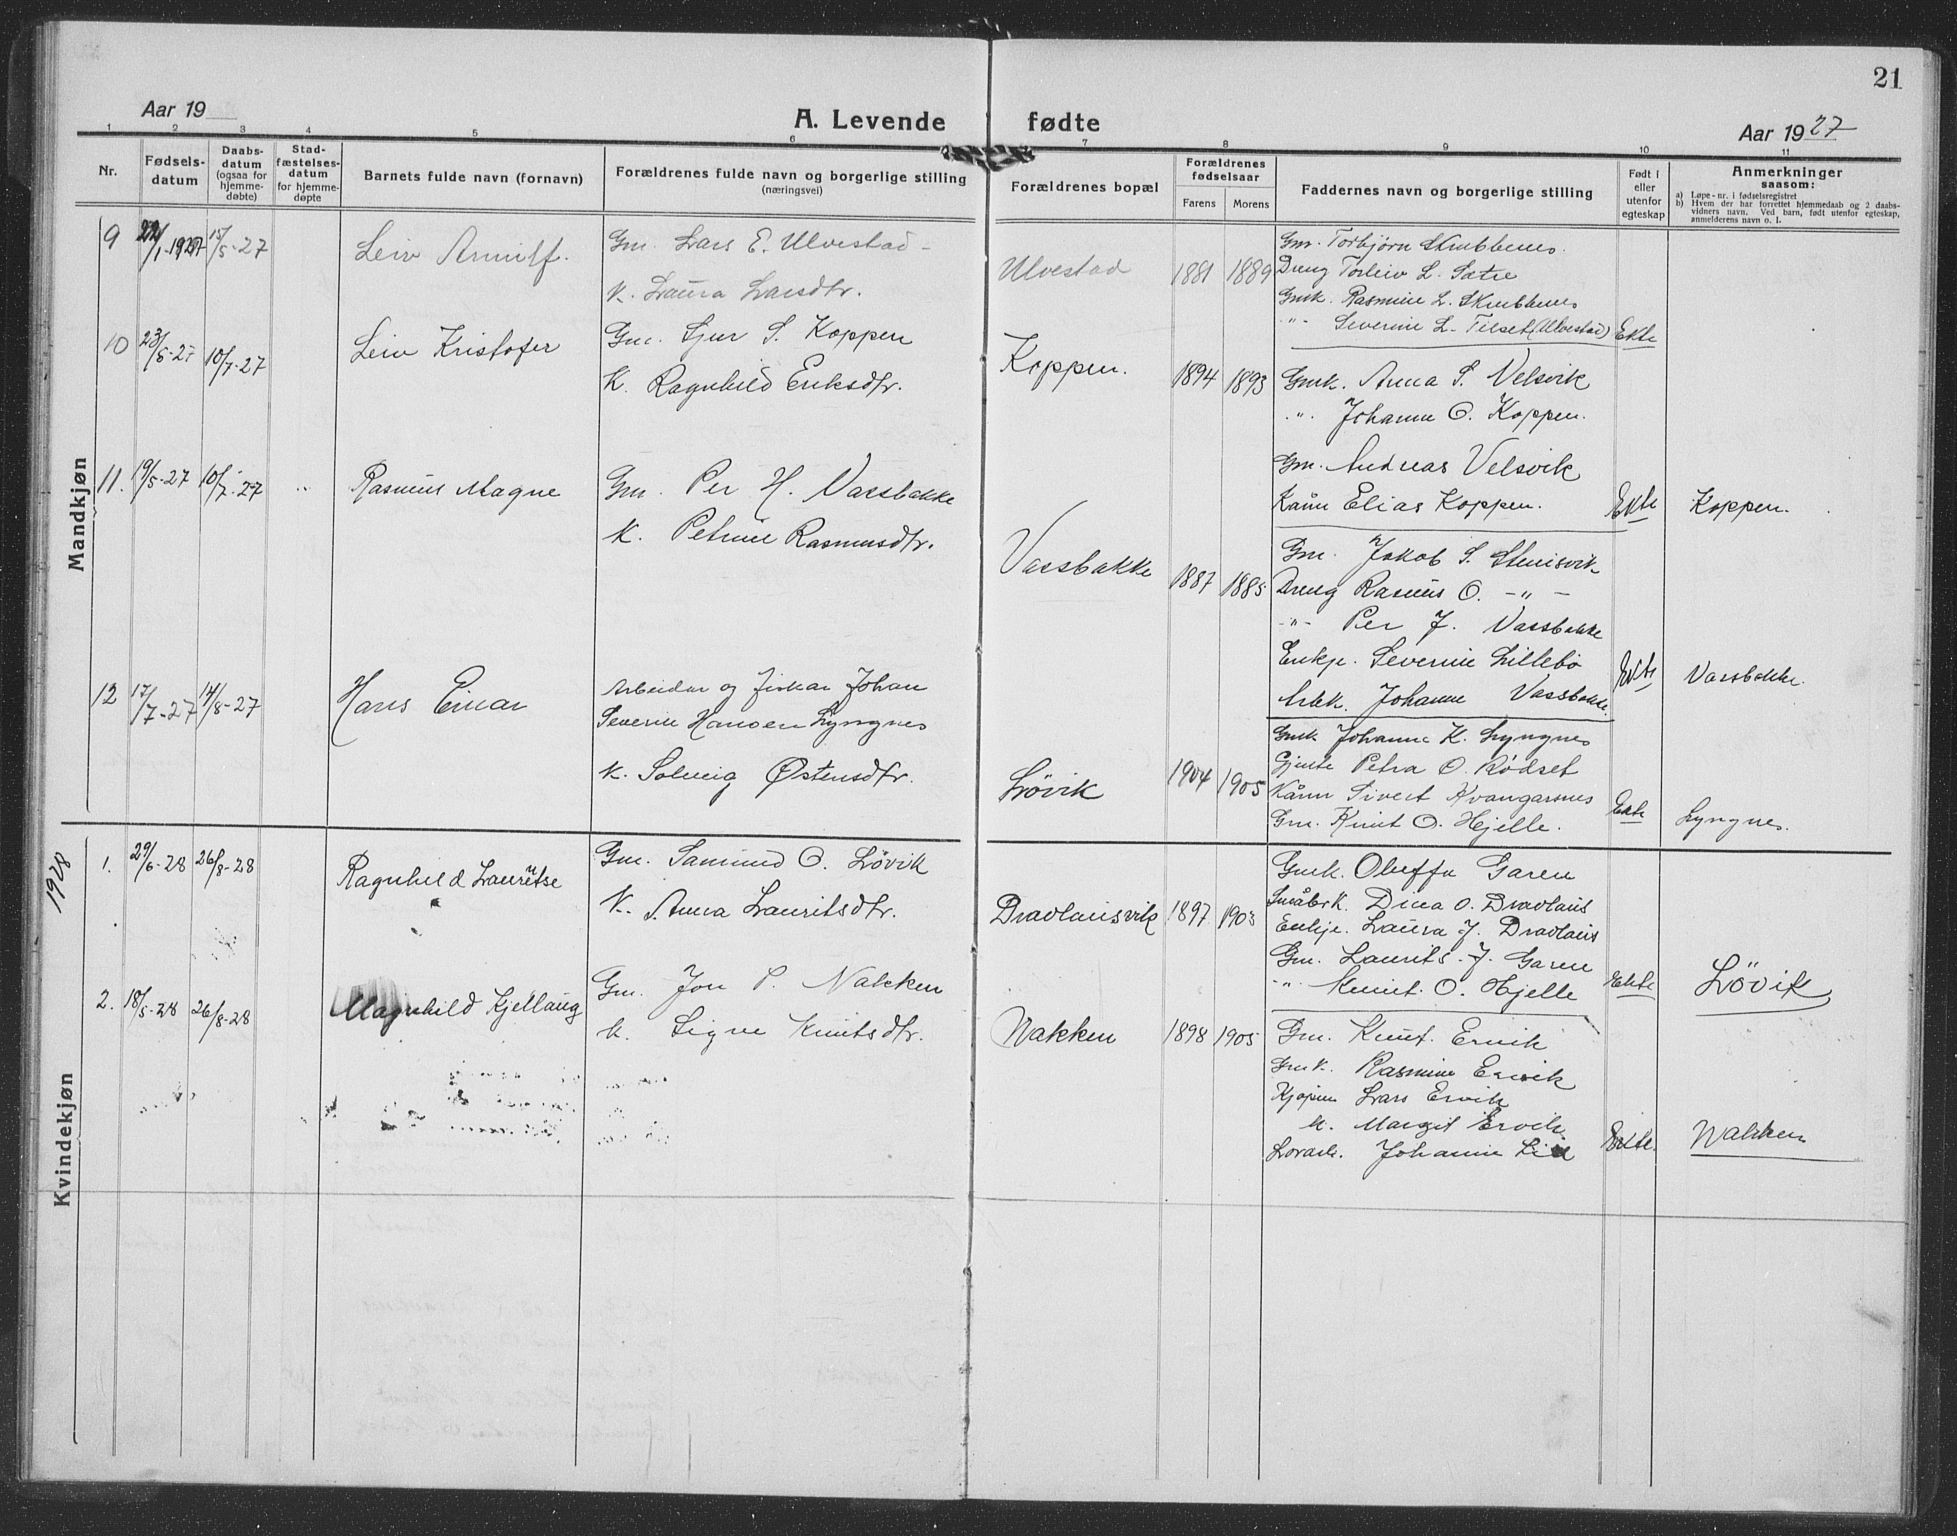 21
Aar 19
A. Levende fødte
Aar 1927
1 2 3 4 5 6 7 8 9 10 11
Nr.
Fødsels-
datum
Daabs-
datum
(ogsaa for
hjemme-
døbte)
Stad-
fæstelses-
datum
for hjemme-
døpte
Barnets fulde navn (fornavn)
Forældrenes fulde navn og borgerlige stilling
(næringsvei)
Forældrenes bopæl
Forældrenes
fødselsaar
Farens Morens
Faddernes navn og borgerlige stilling
Født i
eller
utenfor
egteskap
Anmerkninger
saasom:
a) Løpe-nr. i fødselsregistret
b) Hvem der har forrettet hjemmedaab og 2 daabs-
vidners navn. Ved barn, født utenfor egteskap,
anmelderens navn o. l.
Mandkjøn
9 /1-1927 15/5-27 Leiv Arnulf.
Gm. Lars E. Ulvestad -
K. Laura Larsdtr.
Ulvestad 1881 1889
Gm. Torbjørn Skrubbenes.
Dreng Torleiv L. Sætre
Gmk. Rasmine L. Skrubbenes
-"- Severine L. Tilset (Ulvestad) Ekte
10 23/5-27 10/7-27 Leiv Kristofer
Gm. Sjur S. Koppen
K. Ragnhild Eriksdtr.
Koppen. 1894 1893
Gmk. Anna S. Velsvik
-"- Johanne O. Koppen.
Gm. Andreas Velsvik
Kårm Elias Koppen. Ekte Koppen.
11. 19/5-27 10/7-27 " Rasmus Magne
Gm. Per H. Vassbakke
K. Petrine Rasmusdtr.
Vassbakke 1887 1885
Gm. Jakob S. Steinsvik
Dreng Rasmus O. -"-
-"- Per J. Vassbakke
Enkje. Severine Lillebø
Arbk. Johanne Vassbakke. Ekte Vassbakke.
12 17/7-27 14/8-27 Hans Einar
Arbeidar og fiskar Johan
Severin Hansen Lyngnes
K. Solveig Østensdtr.
Løvik 1904 1905
Gmk Johanne K. Lyngnes
Gjente Petra O. Rødset
Kårm Sivert Kvangarsnes
Gm. Knut O. Hjelle. Ekte Lyngnes.
1928
Kvindekjøn
1. 29/6-28 26/8-28 Ragnhild Lauritse
Gm. Samund O. Løvik
K. Anna Lauritsdtr.
Dravlausvik 1897 1903
Gmk. Oluffa Garen
Småbrk. Dina O. Dravlaus
Enkje. Laura J. Dravlaus
Gm. Laurits J. Garen
-"- Knut O. Hjelle Ekte Løvik
2. 18/5-28 26/8-28 Magnhild Kjellaug
Gm. Jon P. Nakken
K. Signe Knutsdtr.
Nakken 1898 1905
Gm. Knut Ervik
Gmk. Rasmine Ervik
Kjøpm Lars Ervik
K. Margit Ervik
Johanne Ekte Nakken